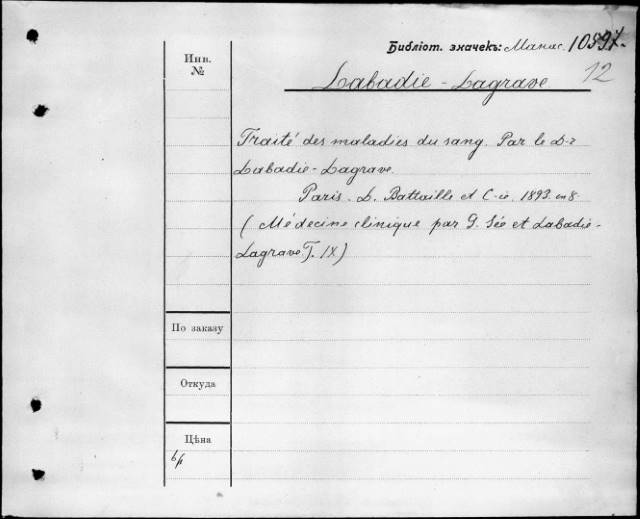 Библіот. значекъ: Манас. 1089
12
Инв. №
Labadie-Lagrave.
Traité des maladies du sang. Par le D-r
Labadie-Lagrave.
Paris. L. Battaille et C-ie. 1893. in 8.
(Médecine clinique par G. Sée et Labadie-
Lagrave. T. IX)
По заказу
Откуда
Цѣна